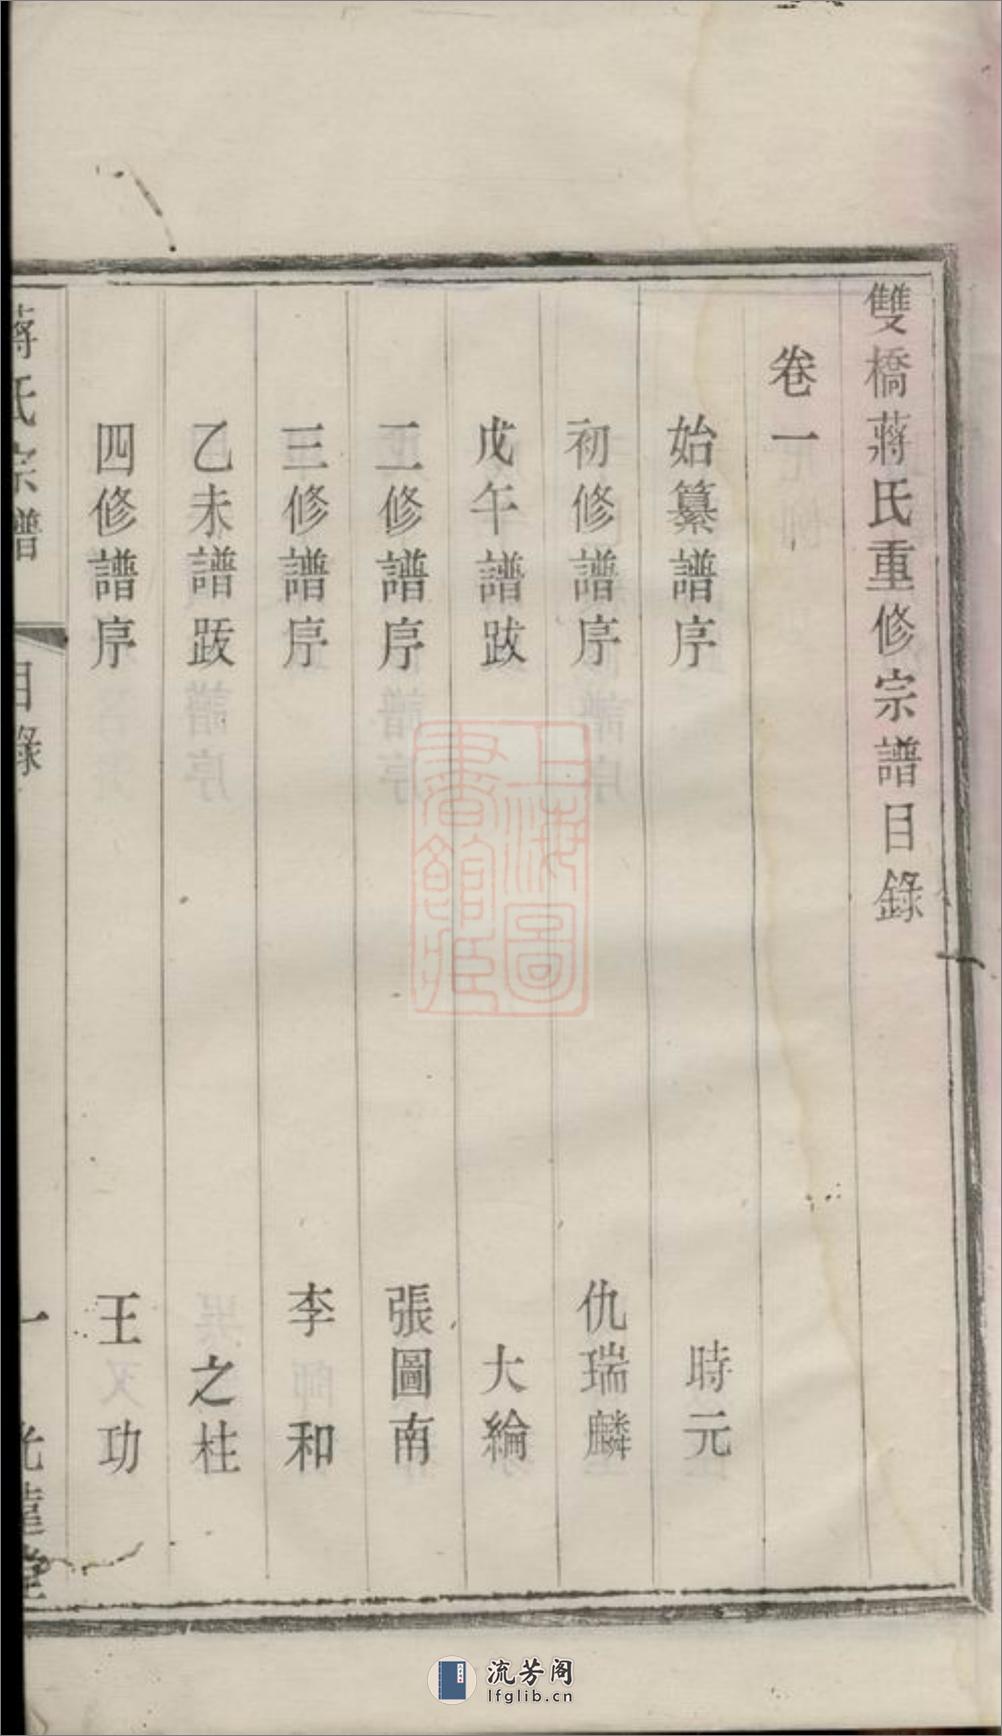 雙橋蔣氏重修宗譜目錄
卷一
始纂譜序 時元
初修譜序 仇瑞麟
戊午譜跋 大綸
二修譜序 張圖南
三修譜序 李和
乙未譜跋 之柱
四修譜序 王功
蔣氏宗譜 目錄 一
上海圖書館藏
流芳阁
lfglib.cn